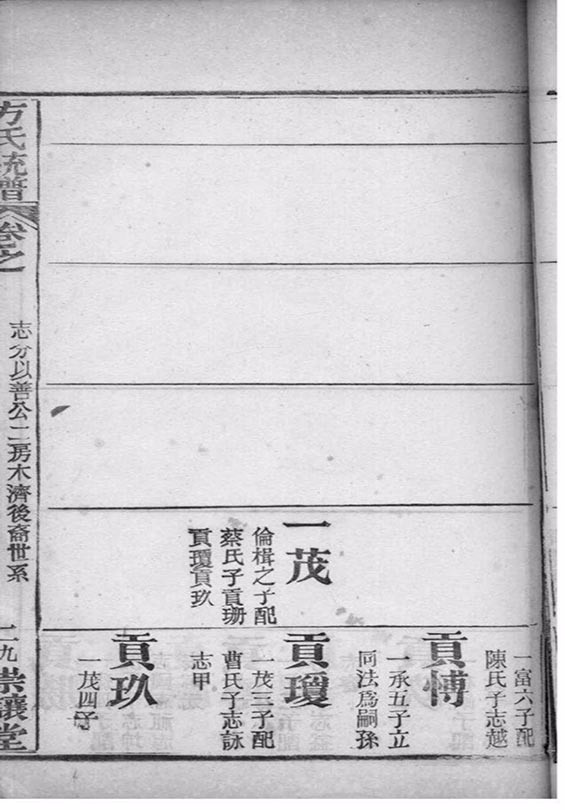 一茂
倫楫之子配
蔡氏子貢珊
貢瓊貢玖
一富六子配
陳氏子志越
貢愽
一永五子立
同法爲嗣孫
貢瓊
一茂三子配
曹氏子志詠
志甲
貢玖
一茂四子
方氏統譜
卷之
志分以善公二房木濟後裔世系
二九
堂